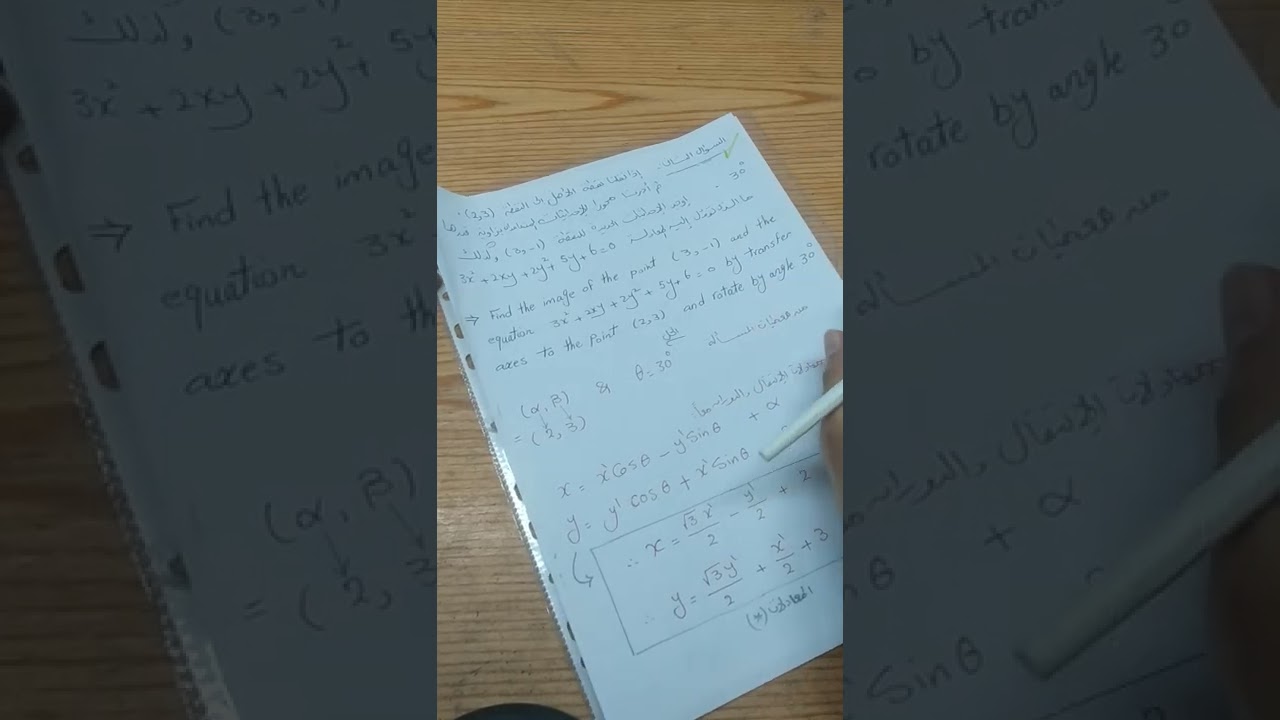 السؤال الثالث: إذا نقلنا نقطة الأصل إلى النقطة (2,3)
ثم أدرنا محورا الإحداثيات بزاوية قدرها 30°
أوجد الإحداثيات الجديدة للنقطة (3,-1) وكذلك
ما الذى تؤول إليه المعادلة 3x² + 2xy + 2y² + 5y + 6 = 0
⇒ Find the image of the point (3,-1) and the
equation 3x² + 2xy + 2y² + 5y + 6 = 0 by transfer
axes to the point (2,3) and rotate by angle 30°
الحل
من معطيات المسألة
(α, β) & θ = 30°
= (2, 3)
معادلات الإنتقال والدوران معاً:
x = x' cosθ - y' sinθ + α
y = y' cosθ + x' sinθ
∴ x = √3 x'/2 - y'/2 + 2
∴ y = √3 y'/2 + x'/2 + 3
المعادلات (*)